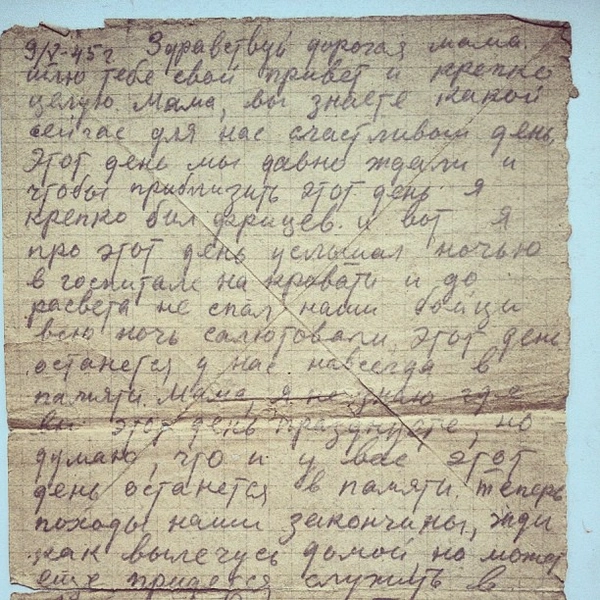 9/V-45г Здравствуй дорогая мама.
шлю тебе свой привет и крепко
целую. Мама, вы знаете какой
сейчас для нас счастливый день,
Этот день мы давно ждали и
чтобы приблизить этот день я
крепко бил фрицев. и вот я
про этот день услышал ночью
в госпитале на кровати и до
расвета не спал наши бойцы
всю ночь салютовали. этот день
останется у нас навсегда в
памяти. Мама, я не знаю где
вы этот день празднуете, но
думаю, что и у вас этот
день останется в памяти. теперь
походы наши закончины, жди
как вылечусь домой но может
еще придется служить в